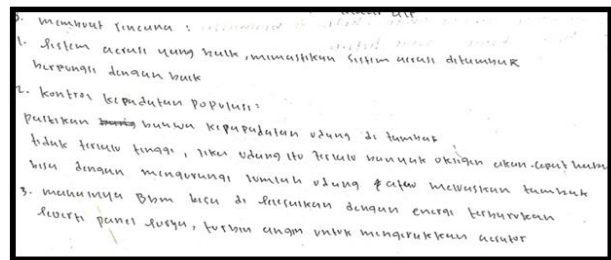 3. membuat rincana :
1. Sistem aerasi yang baik, memastikan sistim aerasi ditambak
berpungsi dengan baik
2. kontrol kepadatan populasi :
pastikan bahwa kepapadatan udang di tambak
tidak terlalu tinggi, jika udang itu terlalu banyak oksigen akan cepat habis
bisa dengan mengurangi jumlah udang atau meluaskan tambak
3. mahalnya Bbm bisa di sesuaikan dengan energi terbarukan
seperti panel surya, turbin angin untuk menggerakkan aerator